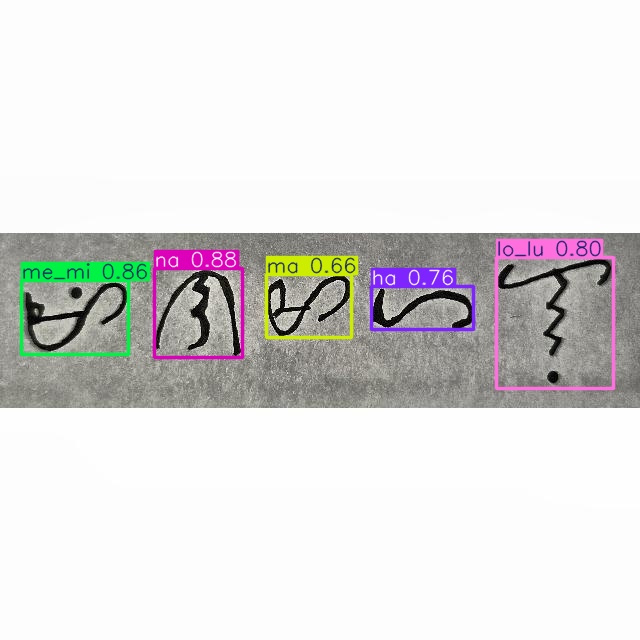 me_mi 0.86 na 0.88 ma 0.66 ha 0.76 lo_lu 0.80
ᜋᜒ ᜈ ᜋ ᜑ ᜎᜓ